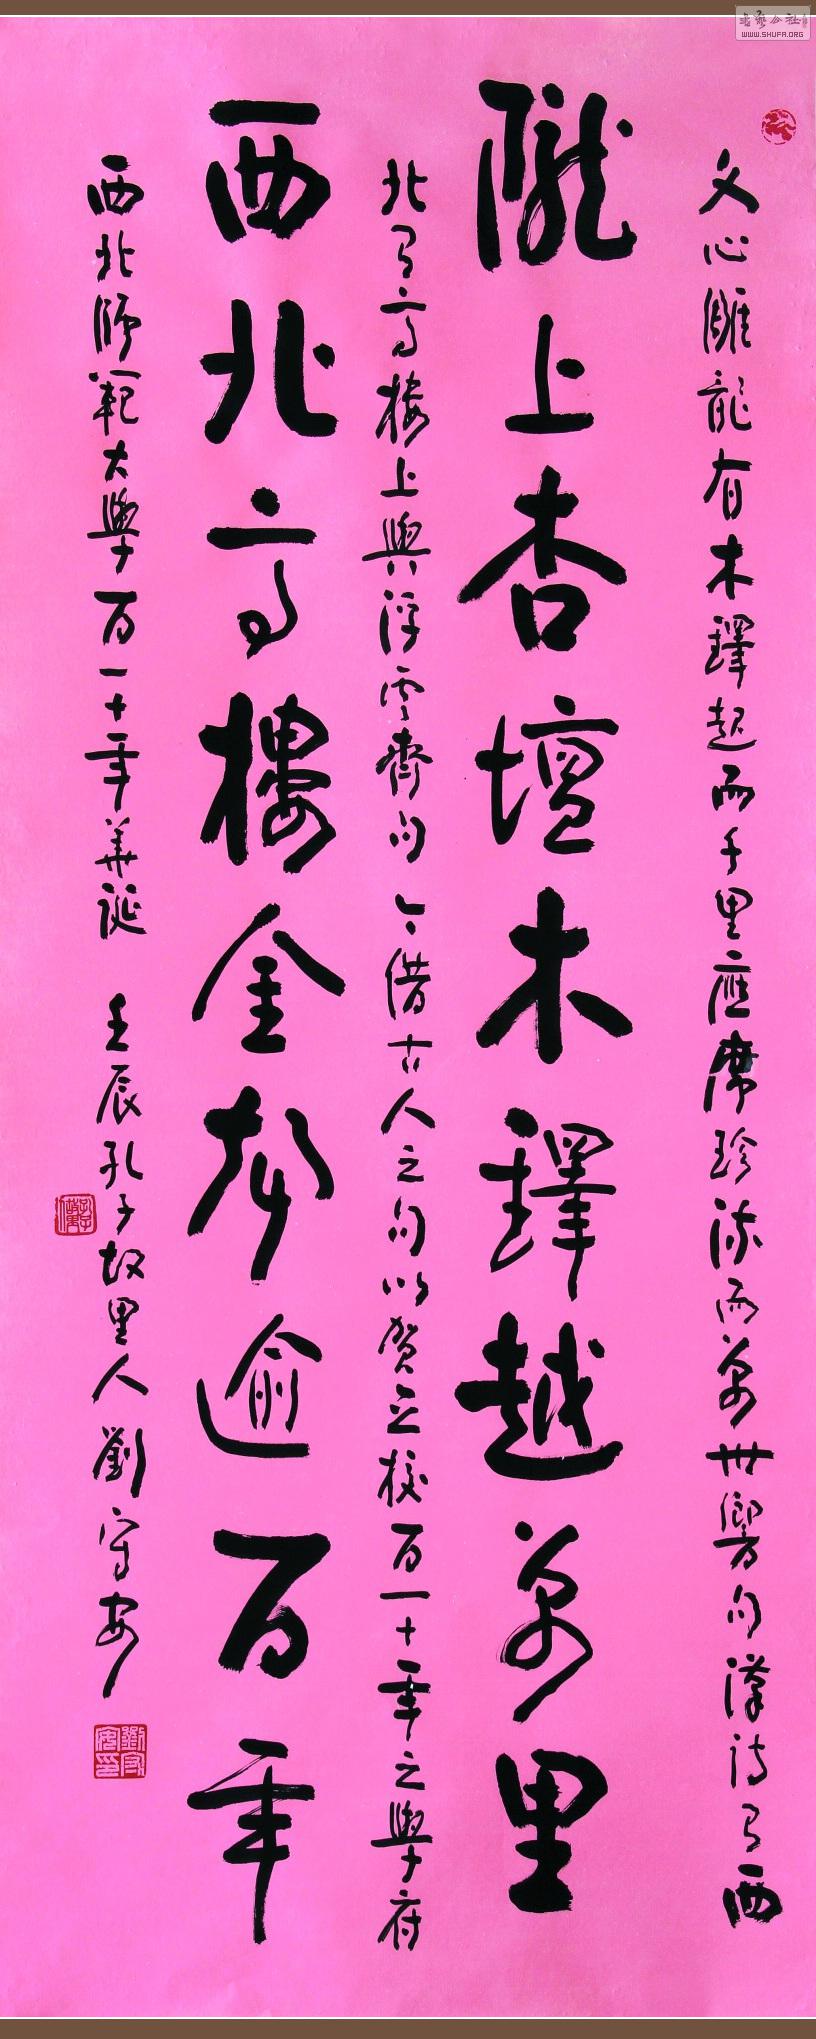 文心雕龍有木鐸起而千里應席珍流而萬世響句漢詩有西
隴上杏壇木鐸越萬里
北有高樓上與浮雲齊句今借古人之句以賀立校百一十年之學府
西北高樓金聲逾百年
西北師範大學百一十年華誕 壬辰孔子故里人劉守安
劉守安印
书艺公社
WWW.SHUFA.ORG